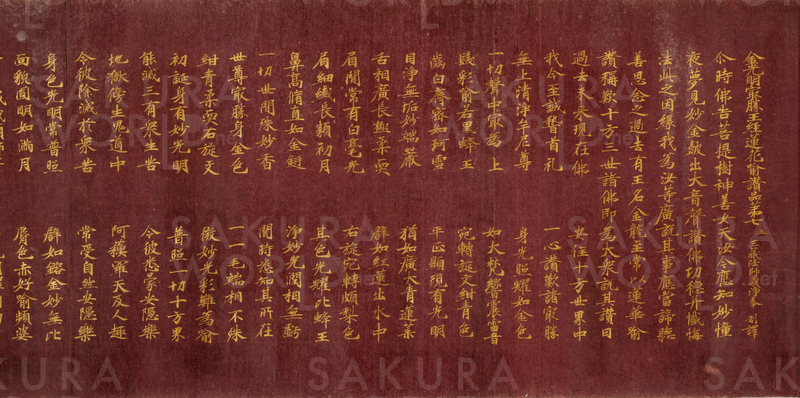 金光明最勝王經蓮花喻讚品第七 三藏法師義淨奉制譯
尒時佛告菩提樹神善女天汝今應知妙幢
夜夢見妙金鼓出大音聲讚佛功德并懺悔
法此之因緣我為汝等廣說其事應當諦聽
善思念之過去有王名金龍主常以蓮華喻
讚稱歎十方三世諸佛即為大衆說其讚曰
過去未來現在佛 安住十方世界中
我今至誠稽首礼 一心讚歎諸最勝
無上清淨牟尼尊 身光照耀如金色
一切聲中最為上 如大梵響震雷音
髮彩喻若黑蜂王 宛轉旋文紺青色
齒白齊密如珂雪 平正顯現有光明
目淨無垢妙端嚴 猶如廣大青蓮葉
舌相廣長極柔耎 譬如紅蓮出水中
眉間常有白毫光 右旋宛轉頗梨色
眉細纖長類初月 其色光耀比蜂王
鼻高脩直如金鋌 淨妙光閏相無虧
一切世間殊妙香 聞時悉知其所在
世尊最勝身金色 一一毛端相不殊
紺青柔耎右旋文 微妙光彩難為喻
初誕身有妙光明 普照一切十方界
能滅三有衆生苦 令彼悉蒙安隱樂
地獄傍生鬼道中 阿蘇羅天及人趣
令彼除滅於衆苦 常受自然安隱樂
身色光明常普照 譬如鎔金妙無比
面貌圓明如滿月 脣色赤好喻頻婆
SAKURA WORLD.net